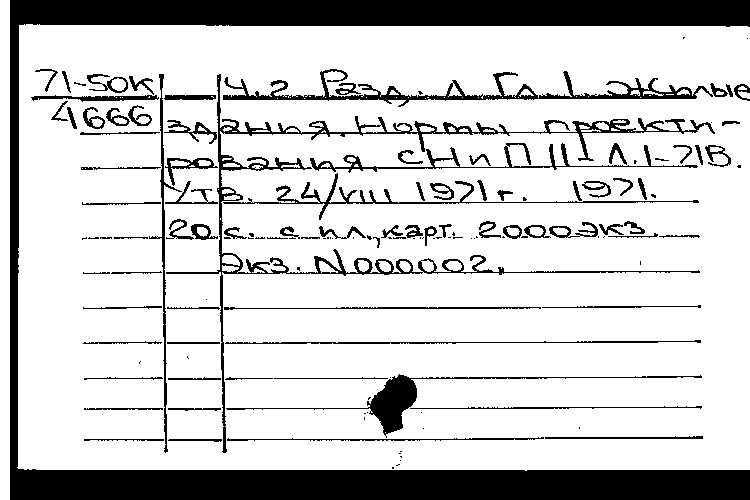 71-50К Ч.2 Разд. Л Гл. 1. Жилые
4666 здания. Нормы проекти-
рования. СНиП II-Л.1-71В.
Утв. 24/VIII 1971г. 1971.
20 с. с ил., карт. 2000экз.
Экз. N000002.